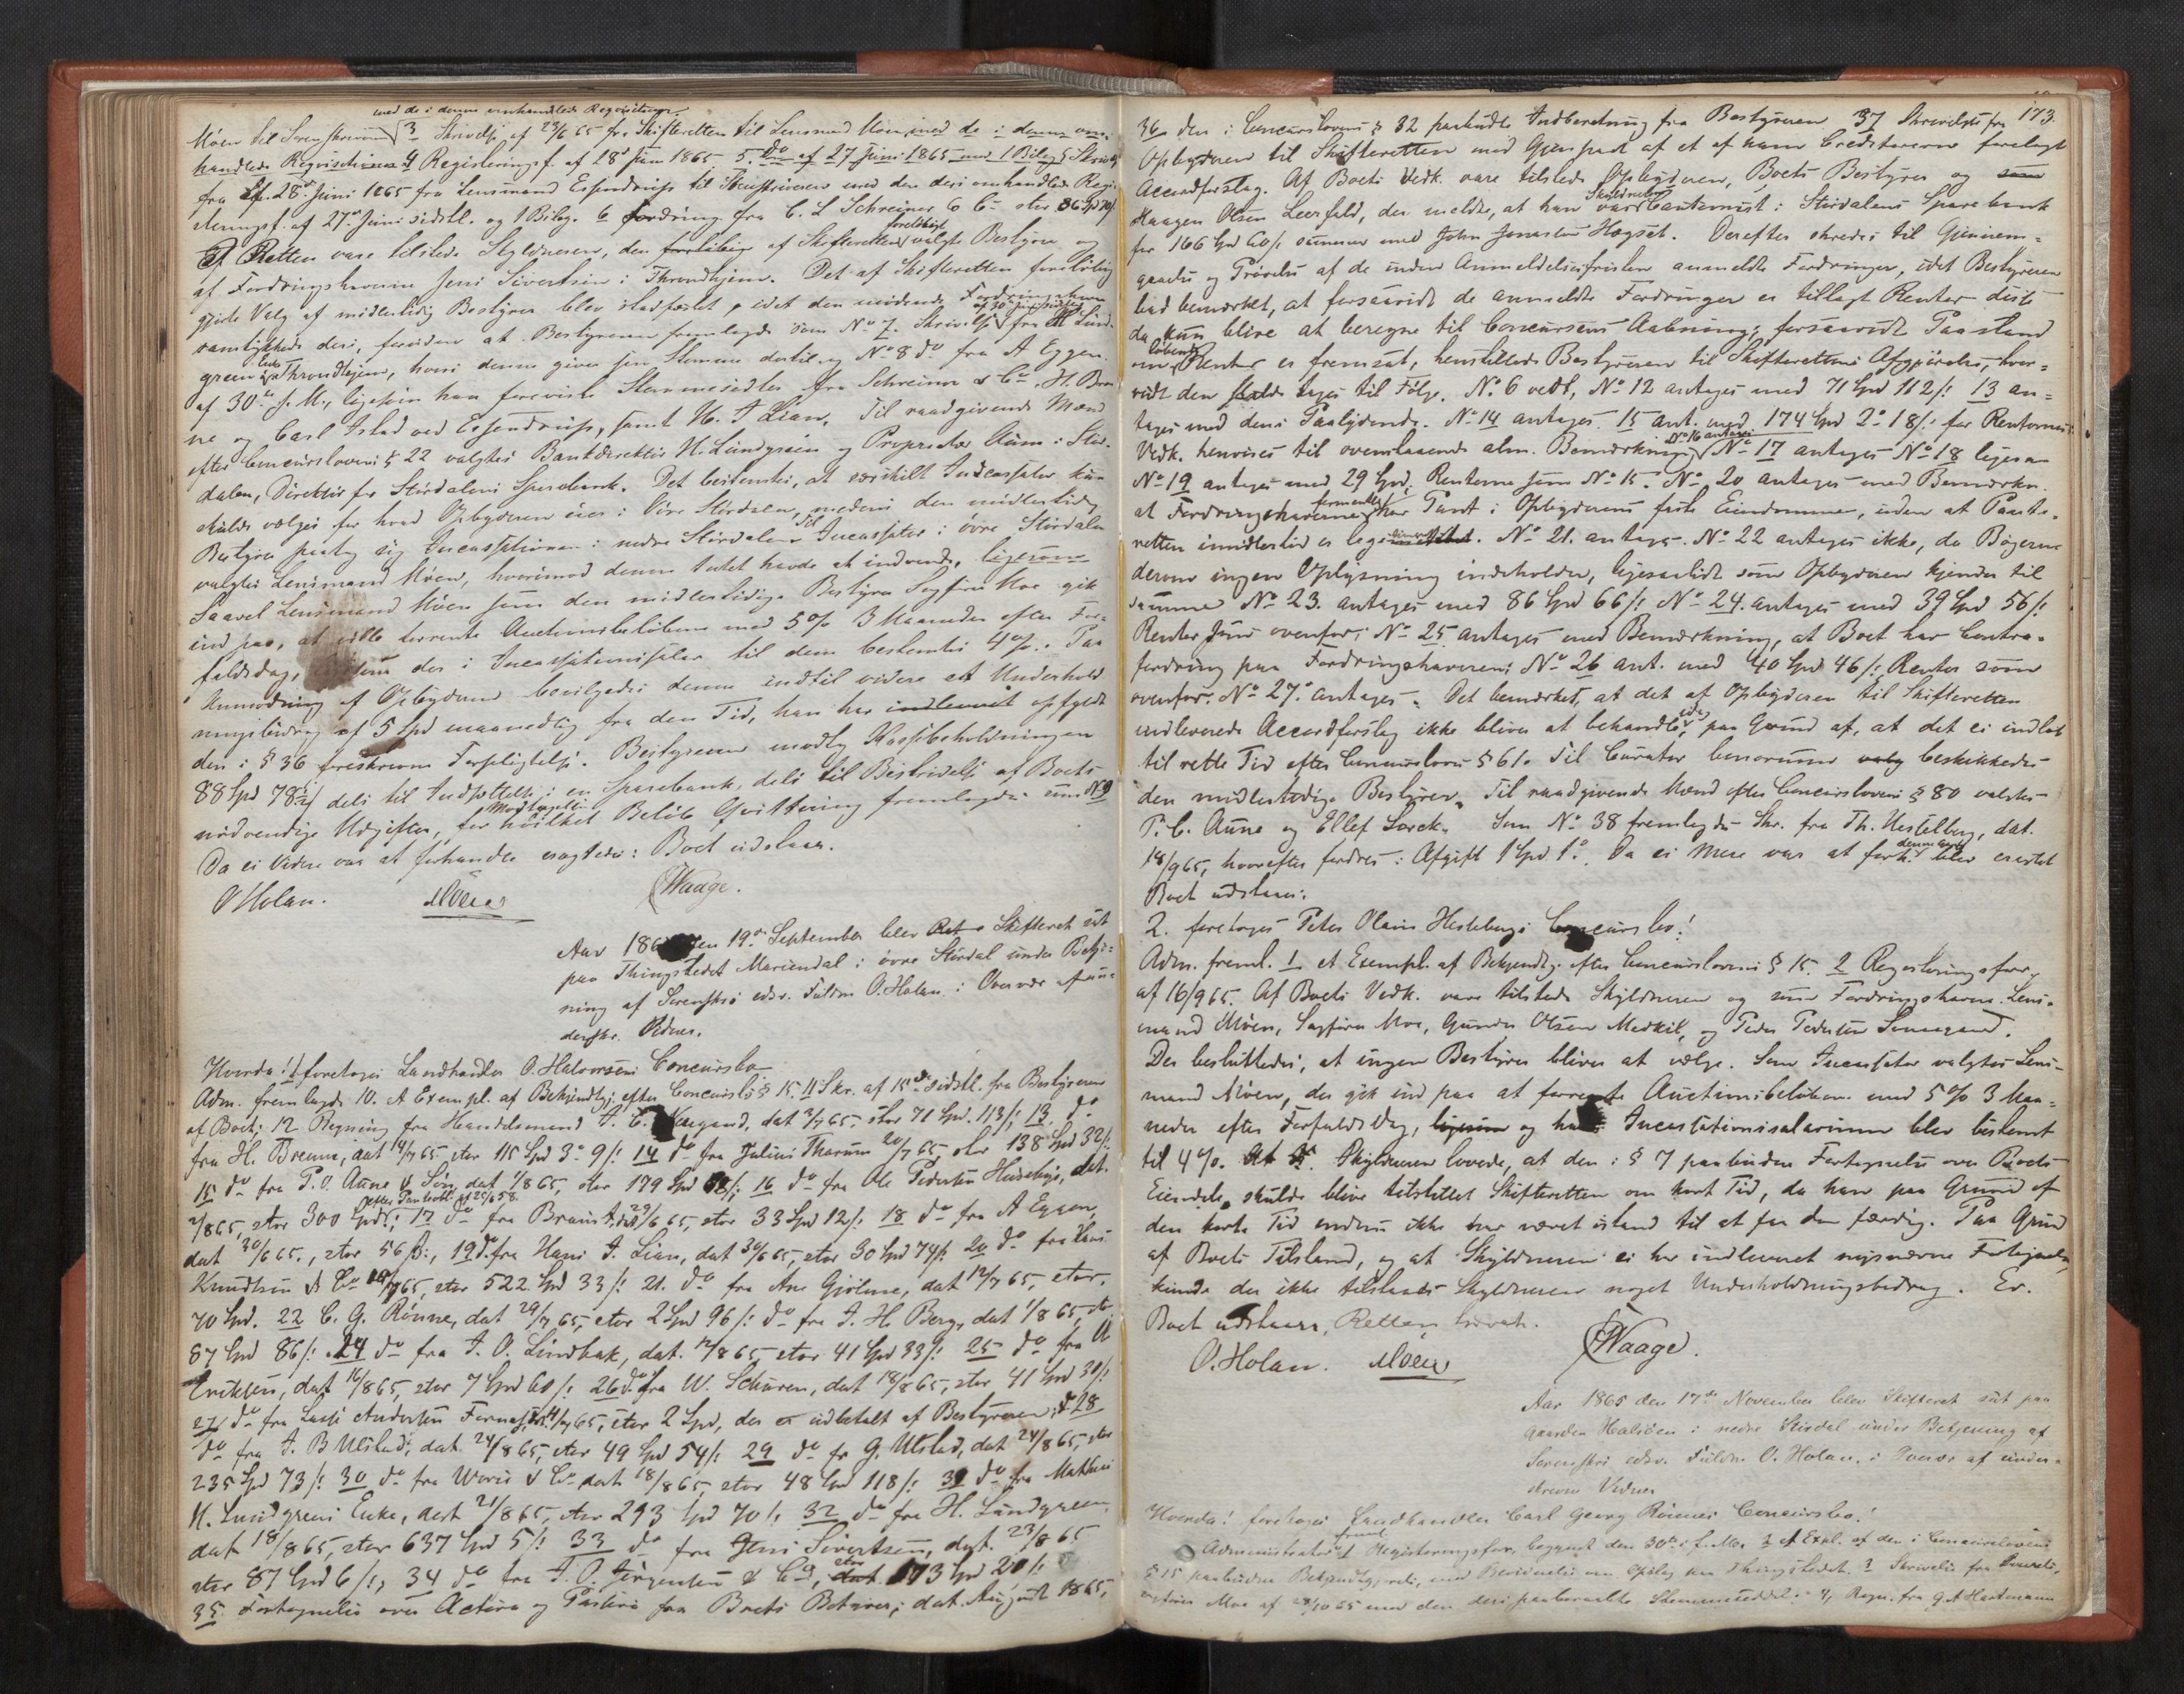 med de i denne omhandlede Requisitioner
Möen til Sorenskriveren 3 Skrivelse af 23/6 65 fra Skifteretten til Lensmand Möen med de i denne om-
handlede Requisitioner 4 Registreringsf. af 28de Juni 1865 5. Do af 27 Juni 1865 med 1 Bilag
fra 28de Juni 1865 fra Lensmand til Sorenskriveren med den deri omhandlede Regi-
streringsf. af 27de Juni sidstl. og 1 Bilag. 6 fordring fra C. L Schreiner & Co stor 86 Spd
I Retten vare tilstede Skyldneren, den foreløbigt af Skifteretten valgte Bestyrer og
af Fordringshaverne Jens Sivertsen i Throndhjem. Det af Skifteretten foreløbig
gjorte Valg af midlertidig Bestyrer blev stadfæstet, idet den mödende Fordringshaver
samtykkede deri, foruden at Bestyreren fremlagde som No 7. Skrivelse fra H Lund-
green i Throndhjem, hvori denne giver sin Stemme dertil og No 8 do fra A Eggen
af 30te f. M., ligesom han foreviste Stemmesedler fra Schreiner & Co, H. Bren-
ne og Carl ved samt H. J Lian. Til raadgivende Mænd
efter Concurslovens § 22 valgtes Bankdirektör H. Lundgreen og Proprietær Aune i Stör-
dalen, Direktör for Stördalens Sparebank. Det bestemtes, at særskilt Incassator kun
skulde vælges for hvad Opbyderen eier i övre Stördalen, medens den midlertidig
Bestyrer paatog sig Incassationen i nedre Stördalen Til Incassator i övre Stördalen
valgtes Lensmand Möen, hvorimod denne Intet havde at indvende, ligesom
Saavel Lensmand Möen som den midlertidige Bestyrer Sagförer Moe gik
ind paa, at ville forrente Auctionsbelöbene med 5% 3 Maaneder efter For-
faldsdag, der i Incassationssalær til dem bestemtes 4%. Paa
Anmodning af Opbyderen bevilgedes denne indtil videre et Underhold-
ningsbidrag af 5 Spd maanedlig fra den Tid, han har indleveret opfyldt
den i § 36 foreskrevne Forpligtelse. Bestyreren modtog Kassebeholdningen
88 Spd 78½ dels til Indsættelse i en Sparebank, dels til Bestridelse af Boets
nödvendige Udgifter, for hvilket Belöb Qvittering fremlagdes som No 9
Da ei Videre var at forhandle eragtedes: Boet udslaar.
O Holan. Möen Waage.
Aar 186 den 19de September blev Skifteret sat
paa Thingstedet Mariendal i övre Stördal under Betje-
ning af Sorenskr edsv. Fuldm O. Holan i Overvær af un-
derskr. Vidner.
Hvorda! 1 foretoges Landhandler O. Halvorsens Concursbo
Adm. fremlagde 10. et Exempl. af Bekjendtg. efter Concursl § 15. 11 Skr. af 15de sidstl. fra Bestyreren
af Boet; 12 Regning fra Handelsmand dat 3/7 65. stor 71 Spd. 113 /; 13 do
fra H. Brenne, dat 14/7 65 stor 115 Spd 3. 9 /: 14 do fra Julius Thorum 20/7 65, stor 138 Spd 32 /:
15 do fra P. O. Aune & Sön dat 1/8 65, stor 179 Spd 16 do fra Ole Pedersen Husebye, dat.
2/8 65, stor 300 Spd; 17 do fra Braun dat 29/6 65, stor 33 Spd 12 /: 18 do fra A Eggen,
dat 30/6 65., stor 56 ß., 19 do fra Hans J. Lian, dat 30/6 65, stor 30 Spd 74 /: 20 do fra
Knudtzon & Co 65, stor 522 Spd 33 /: 21. do fra Ane Gjölme, dat 12/7 65, stor.
70 Spd. 22 C. G. Rönne, dat 29/7 65, stor 2 Spd 96 /: do fra J. H Berg, dat 1/8 65, stor
87 Spd 86 /: 24 do fra J. O. Lindbak, dat. 12/8 65 stor 41 Spd 33 /: 25 do fra
Eriksen, dat 16/8 65, stor 7 Spd 60 /: 26 do fra W. Schuren, dat 18/8 65, stor 41 Spd 30 /:
27 do fra Lassi Andersen 65, stor 2 Spd, der er udbetalt af Bestyreren; 28
do fra J. B Ulstad, dat 24/8 65, stor 49 Spd 54 /: 29 do fr G. Ulstad, dat 24/8 65, stor
235 Spd 73 /: 30 do fra & Co dat 18/8 65, stor 48 Spd 118 /: 31 do fra Mathias
H. Lundgreens Enke, dat 21/8 65, stor 293 Spd 70 /: 32 do fra H. Lundgreen,
dat 18/8 65, stor 637 Spd 5 /: 33 do fra Jens Sivertsen, dat. 23/8 65
stor 87 Spd 6 /:, 34 do fra J. O. Jörgensen & Co, stor 173 Spd 20 /:
35. Fortegnelse over Activa og Passiva fra Boets Bestyrer, dat. August 1865,
173.
36 den i Concurslovens § 32 paabudte Indberetning fra Bestyreren 37 Skrivelse fra
Opbyderen til Skifteretten med Gjenpart af et af ham Creditorerne forelagt
Accordforslag. Af Boets Vedk. vare tilstede Opbyderen, Boets Bestyrer og som
Haagen Olsen Leerfald, der meldte, at han var Cautionist i Stördalens Sparebank
for 166 Spd 60 /: sammen med John Jonassen Hognes. Derefter skredes til Gjennem-
gaaelse og Prövelse af de inden Anmeldelsesfristen anmeldte Fordringer, idet Bestyreren
bad bemærket, at forsaavidt de anmeldte Fordringer er tillagt Renter disse
da kun blive at beregne til Concursens Aabning; forsaavidt Paastand
om löbende Renter er fremsat, henstillede Bestyreren til Skifterettens Afgjörelse, hvor-
vidt den skulde tages til Fölge. No 6 vedt, No 12 antages med 71 Spd 112 /: 13 an-
tages med dens Paalydende. No 14 antages. 15 ant. med 174 Spd 2. 18 /: for Renternes
Vedk. henvises til ovenstaaende alm. Bemærkning No 16 antages No 17 antages No 18 ligesaa
No 19 antages med 29 Spd, Renterne som No 15. No 20 antages med Bemærkn.
at Fordringshaverne formentlig har Pant i Opbyderens faste Eiendomme, uden at Pante-
retten imidlertid er No 21. antages. No 22 antages ikke, da Bögerne
derom ingen Oplysning indeholder, ligesaalidt som Opbyderen kjender til
samme No 23. antages med 86 Spd 66 /: No 24. antages med 39 Spd 56 /:
Renter som ovenfor; No 25 antages med Bemærkning, at Boet har Contra-
fordring paa Fordringshaveren; No 26 ant. med 40 Spd 46 /: Renter som
ovenfor. No 27. antages. Det bemærket, at det af Opbyderen til Skifteretten
indleverede Accordforslag ikke bliver at behandle, paa Grund af, at det ei indkom
til rette Tid efter Concursloven § 61. Til Curator bonorum valg beskikkedes
den midlertidige Bestyrer. Til raadgivende Mænd efter Concurslovens § 80 valgtes
P. C. Aune og Ellef Lorck. Som No 38 fremlagdes Skr. fra Th. Hestelberg, dat.
18/9 65, hvorefter fordres i Afgift 1 Spd 1. Da ei Mere var at forh. blev eragtet
Boet udslaaes.
2. foretoges Peter Olaus Hesteberg's Concursbo!
Adm. freml. 1 et Exempl. af Bekjendtg. efter Concurslovens § 15. 2 Registreringsforr.
af 16/9 65. Af Boets Vedk. vare tilstede Skyldneren og som Fordringshavere Lens-
mand Möen, Sagförer Moe, Gunder Olsen og Peder Pedersen
Der besluttedes, at ingen Bestyrer bliver at vælge. Som Incassator valgtes Lens-
mand Möen, der gik ind paa at forrente Auctionsbelöbene med 5% 3 Maa-
neder efter Forfaldsdag, ligesom og hans Incassationssalarium blev bestemt
til 4%. Skyldneren lovede, at den i § 7 paabudne Fortegnelse over Boets
Eiendele, skulde blive tilstillet Skifteretten om kort Tid, da han paa Grund af
den korte Tid endnu ikke har været istand til at faa den færdig. Paa Grund
af Boets Tilstand, og at Skyldneren ei har indleveret nysnævnte Fortegnelse,
kunde der ikke tilstaaes Skyldneren noget Underholdningsbidrag. Er.
Boet udslaaes, Retten hævet.
O. Holan. Möen Waage.
Aar 1865 den 17de November blev Skifteret sat paa
Gaarden Halsöen i nedre Stördal under Betjening af
Sorenskr edsv. Fuldm. O. Holan, i Overvær af under-
skrevne Vidner
Hvorda! foretoges Landhandler Carl Georg Rönnes Concursbo!
Administrator freml. 1 Registreringsforr. begyndt den 30te f. M. 2 et Expl. af den i Concurslovens
§ 15 paabudne Bekjendtgjörelse, med Bevidnelse om Opslag paa Thingstedet. 3 Skrivelse fra
Moe af 28/10 65 med den deri paaberaabte Stemmeseddel. 4, Regn. fra G. A Hartmann